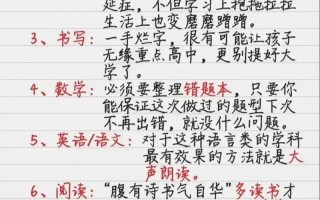 延症，不但学习上拖拖拉拉
生活上也变磨磨蹭蹭。
3、书写：一手烂字，很有可能让孩子
无缘重点高中，更别提好大
学了。
4、数学：必须要整理错题本，只要你
能保证这次做过的题型下次
不再出错，就没什么问题。
5、英语/语文：对于这种语言类的学科
最有效果的方法就是大
声朗读。
6、阅读：“腹有诗书气自华”多读书才